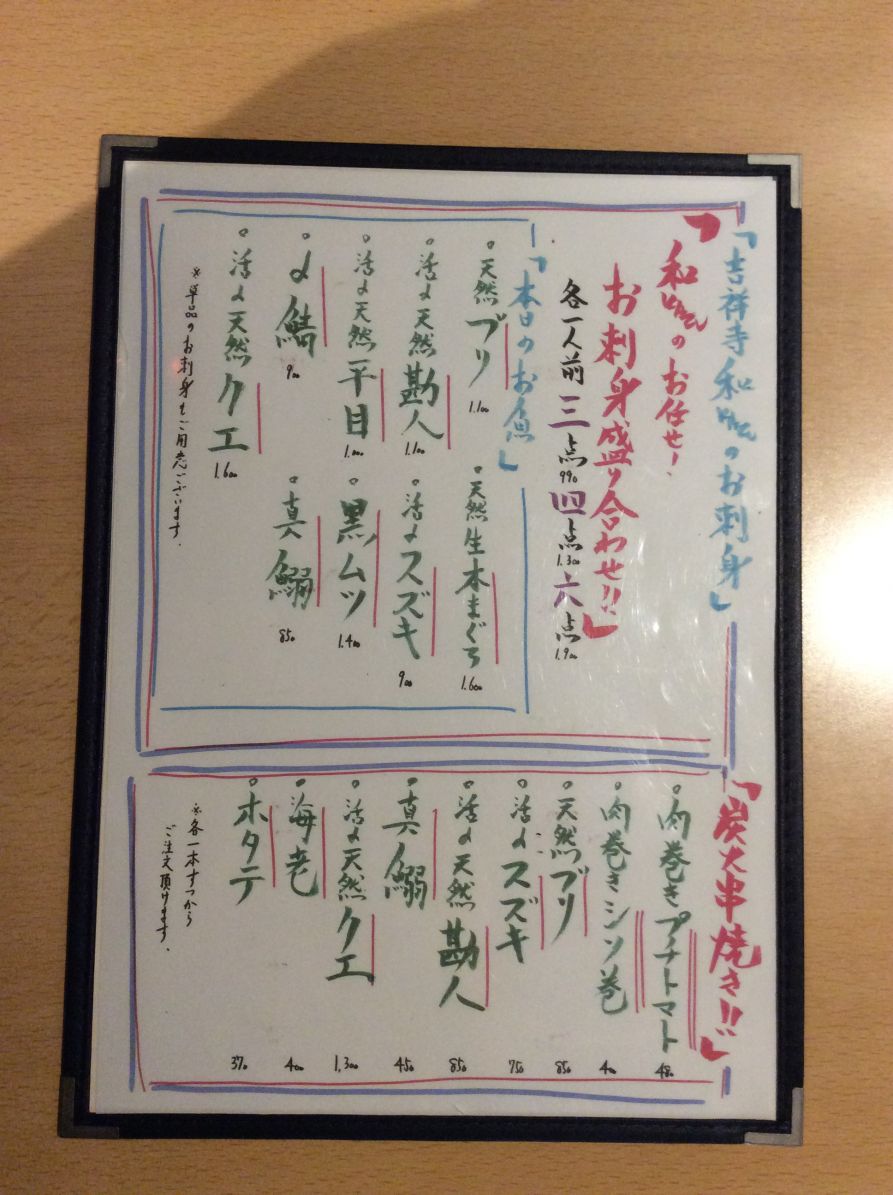 「吉祥寺 和

のお刺身」
「和

のお任せ!
お刺身盛り合わせ!!」
各一人前 三点 990 四点 1.300 六点 1.900
「本日のお魚」
。天然ブリ 1.100
。天然生本まぐろ 1.600
。活〆天然勘八 1.100
。活〆スズキ 900
。活〆天然平目 1.000
。黒ムツ 1.400
。〆鯖 900
。真鰯 850
。活〆天然クエ 1.600
※単品のお刺身もご用意ございます.
「炭火串焼き!!」
。肉巻きプチトマト 480
。肉巻きシソ巻 400
。天然ブリ 850
。活〆スズキ 750
。活〆天然勘八 850
。真鰯 450
。活〆天然クエ 1,300
。海老 400
。ホタテ 370
※各一本ずつから
ご注文頂けます.